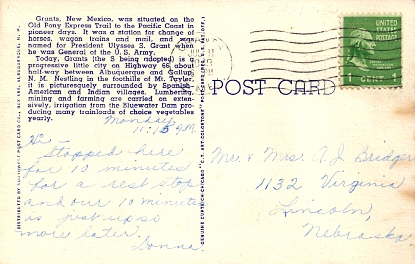 Grants, New Mexico, was situated on the
Old Pony Express Trail to the Pacific Coast in
pioneer days. It was a station for change of
horses, wagon trains and mail, and was
named for President Ulysses S. Grant when
he was General of the U.S. Army.
Today, Grants (the S being adopted) is a
progressive little city on Highway 66 about
half-way between Albuquerque and Gallup,
N. M. Nestling in the foothills of Mt. Taylor,
it is picturesquely surrounded by Spanish-
American and Indian villages. Lumbering,
mining and farming are carried on exten-
sively, irrigation from the Bluewater Dam pro-
ducing many trainloads of choice vegetables
yearly.
Monday
11:15 A.M.
Hi -
Stopped here
for 10 minutes
for a rest stop
and our 10 minutes
is just up so
more later.
Donna.
DISTRIBUTED BY SOUTHWEST POST CARD CO., ALBUQUERQUE, N. M.
GENUINE CURTEICH-CHICAGO "C.T. ART-COLORTONE" POST CARD
POST CARD
1 CENT 1
Mr. & Mrs. A. J. Bridger
1132 Virginia
Lincoln,
Nebraska